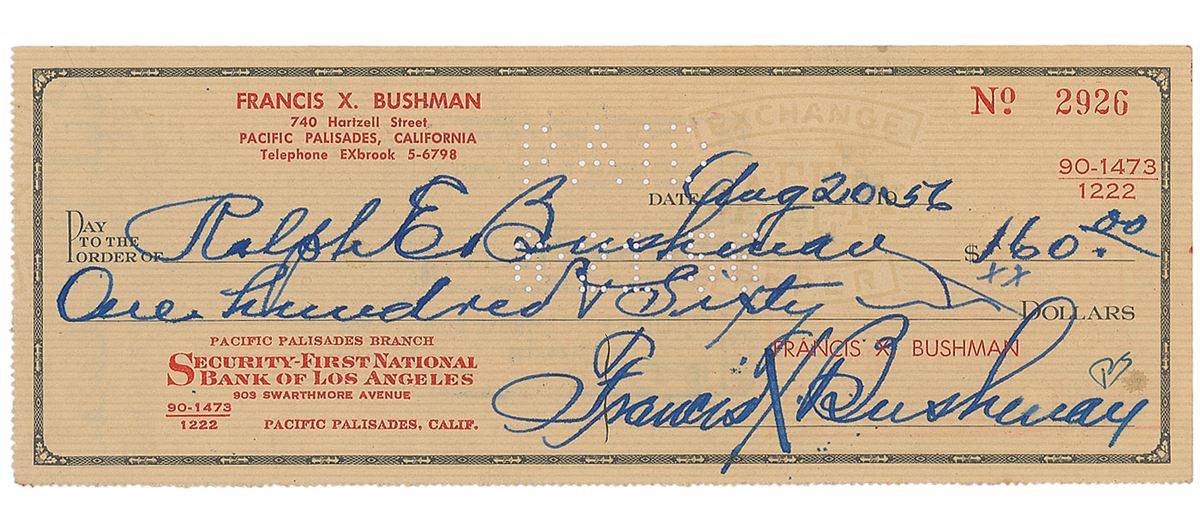 FRANCIS X. BUSHMAN
740 Hartzell Street
PACIFIC PALISADES, CALIFORNIA
Telephone EXbrook 5-6798
Nº 2926
90-1473
1222
DATE Aug 20 1956
PAY TO THE ORDER OF Ralph E. Bushman $160.00
xx
One hundred & Sixty DOLLARS
PACIFIC PALISADES BRANCH
SECURITY-FIRST NATIONAL
BANK OF LOS ANGELES
903 SWARTHMORE AVENUE
90-1473
1222
PACIFIC PALISADES, CALIF.
FRANCIS X. BUSHMAN
Francis X. Bushman
EXCHANGE
PAID